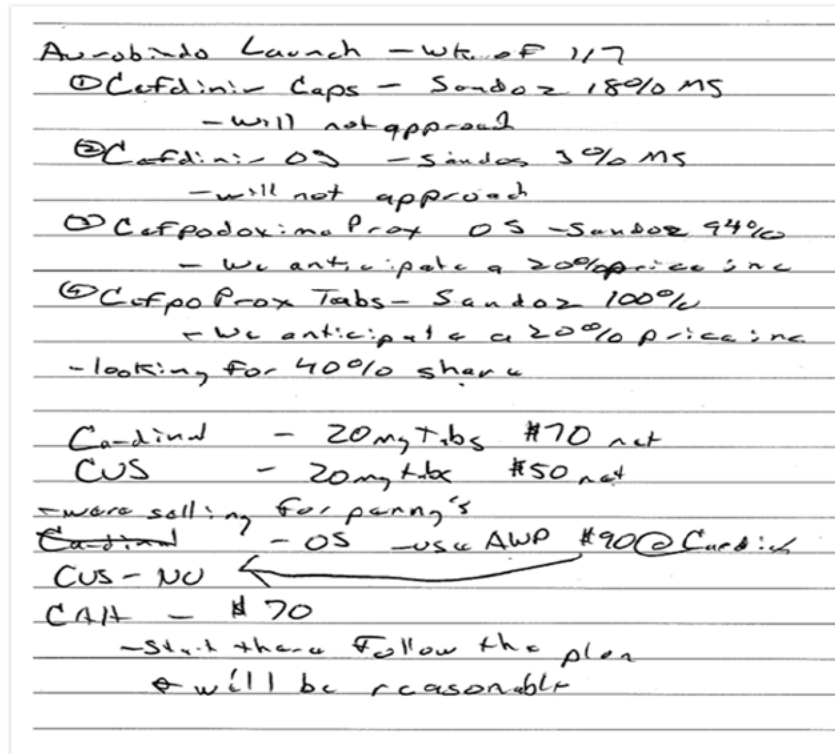 Aurobindo Launch - wk of 1/7
① Cefdinir Caps - Sandoz 18% MS
- will not approach
② Cefdinir OS - Sandoz 3% MS
- will not approach
③ Cefpodoxime Prox OS - Sandoz 94%
- we anticipate a 20% price inc
④ Cefpo Prox Tabs - Sandoz 100%
- we anticipate a 20% price inc
- looking for 40% share
Cardinal - 20mg Tabs $70 net
CVS - 20mg tabs $50 net
- were selling for penny's
Cardinal - OS - use AWP $90 @
CVS - NO
CAH - $70
- Start there Follow the plan
will be reasonable